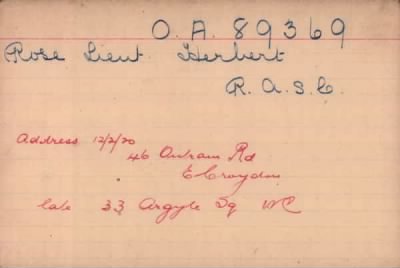 O. A. 89369
Rose Lieut. Herbert
R. A. S. C.
Address 12/2/20
46 Outram Rd
E Croydon
late 33 Argyle Sq WC